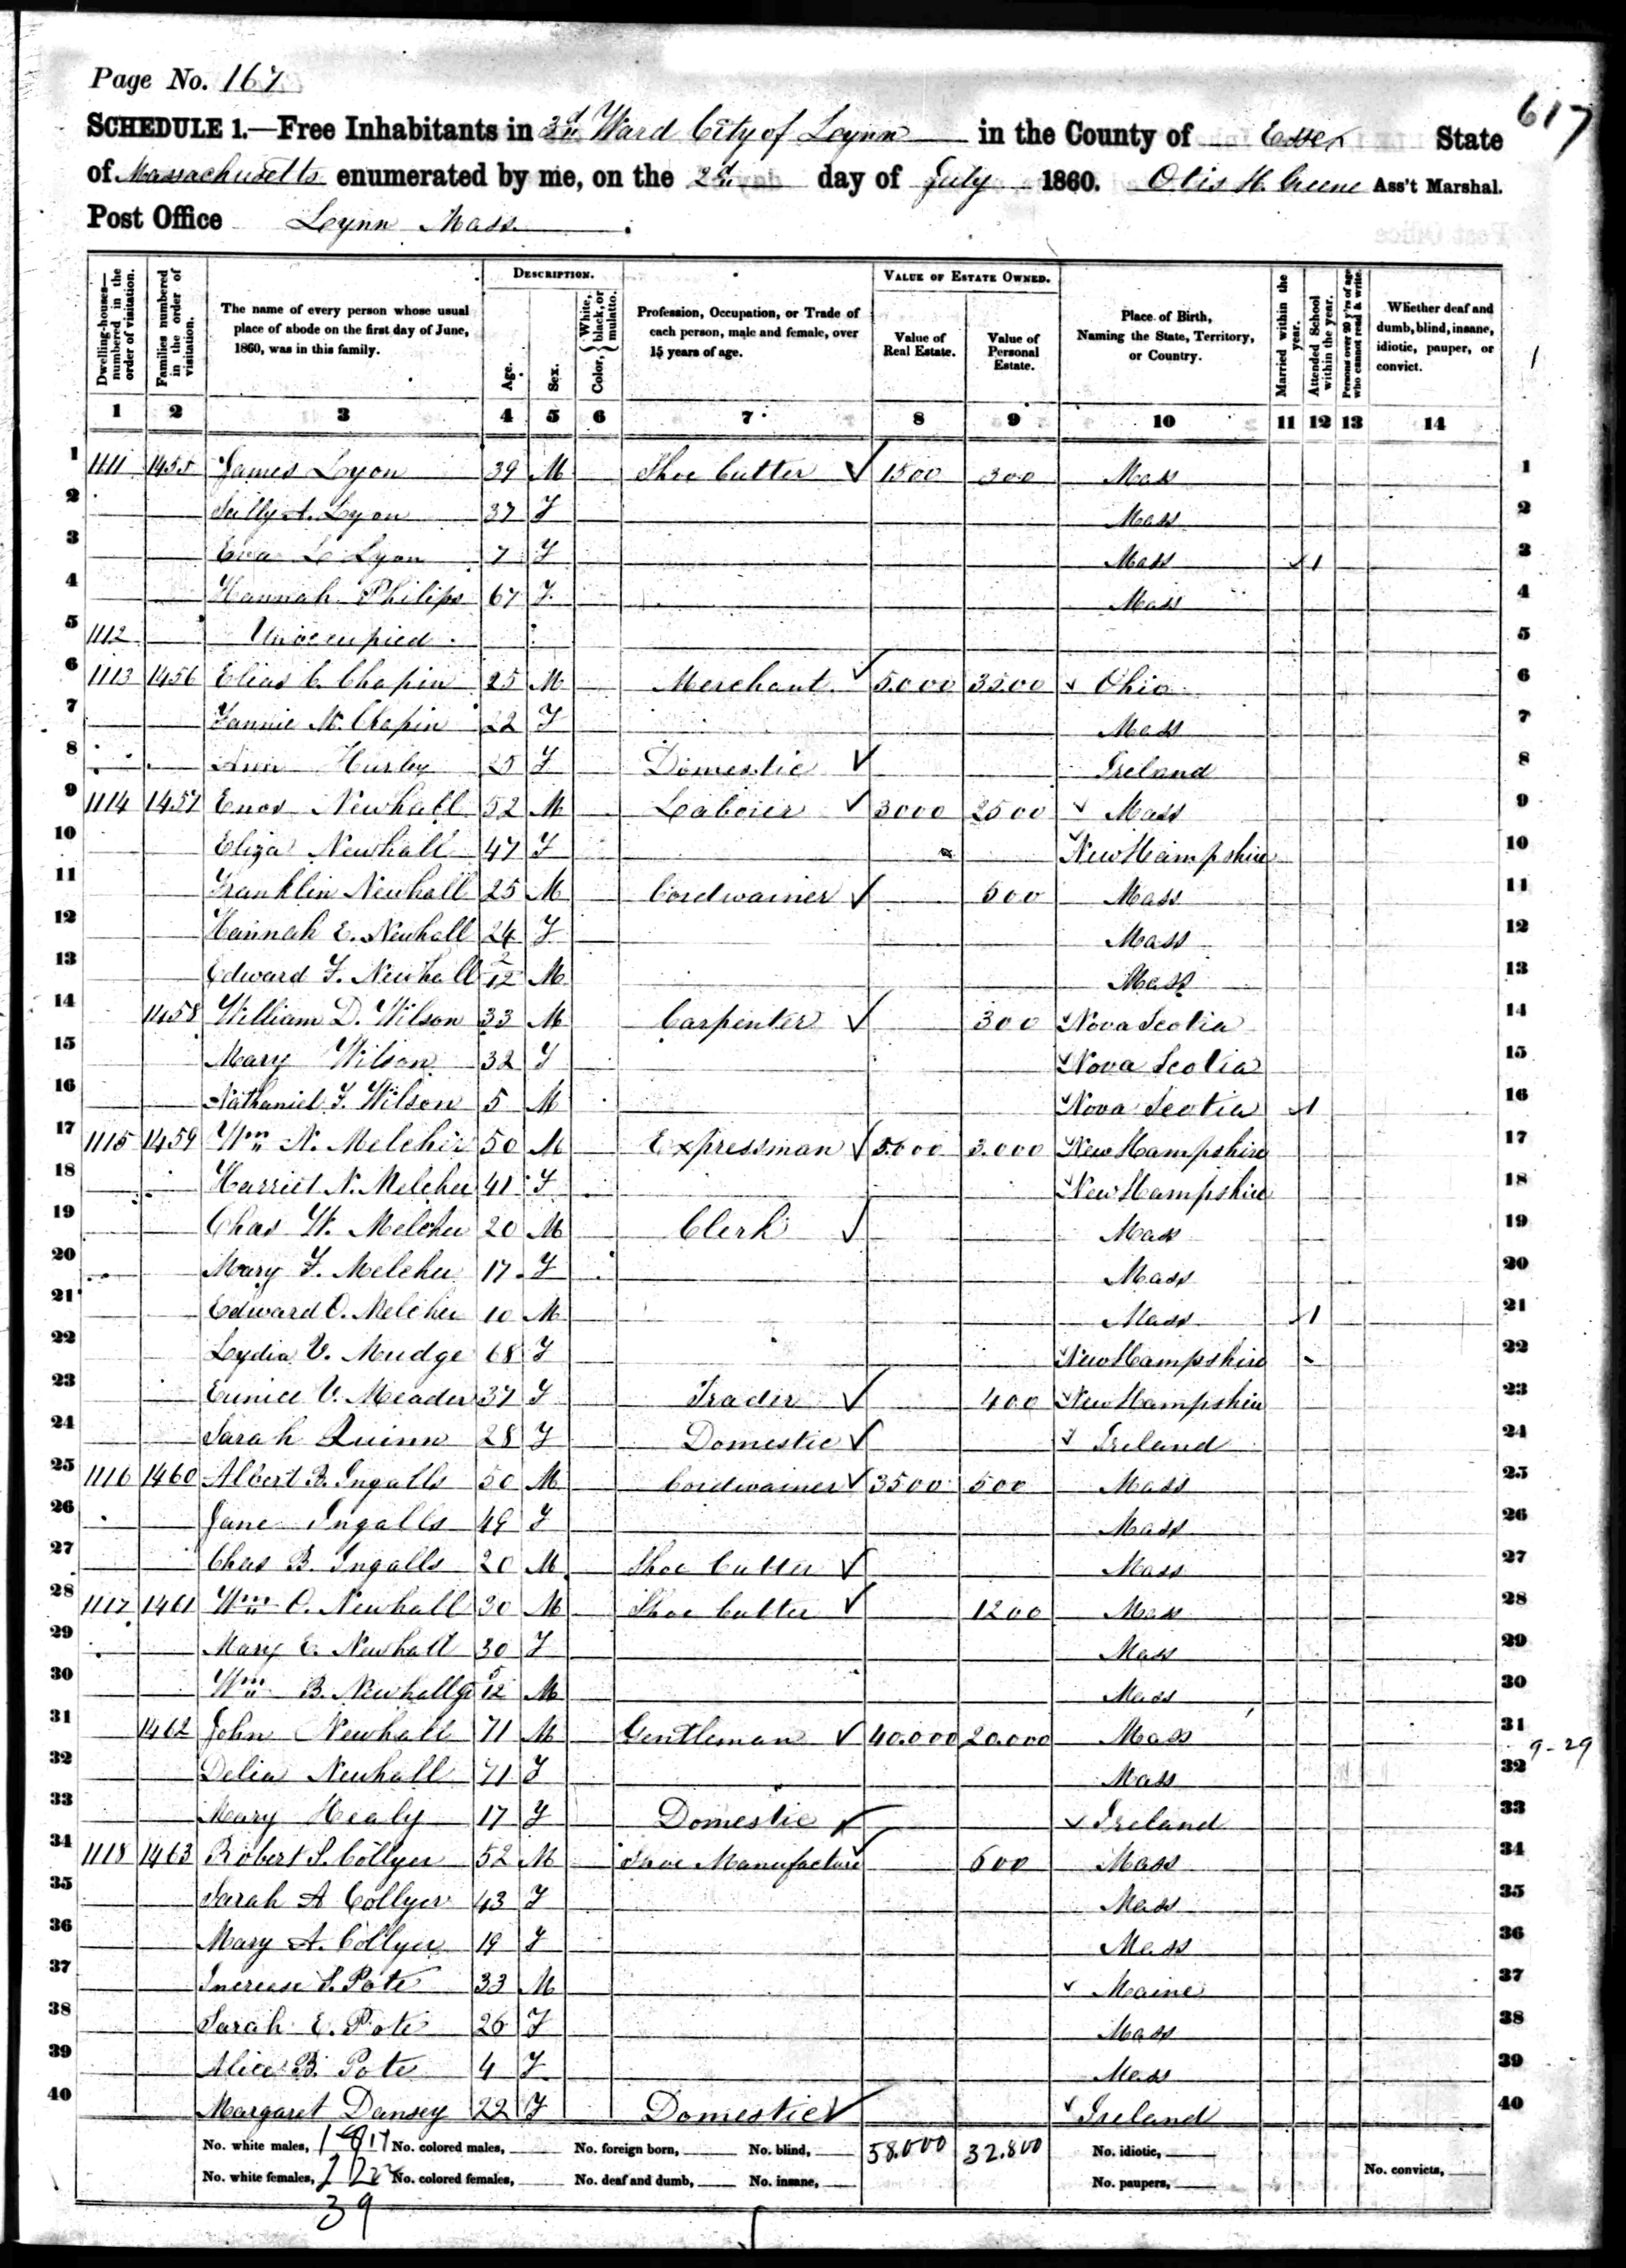 Page No. 167
617
SCHEDULE 1.—Free Inhabitants in 3d Ward City of Lynn in the County of Essex State
of Massachusetts enumerated by me, on the 2d day of July 1860. Otis H. Greene Ass't Marshal.
Post Office Lynn Mass.
Dwelling-houses—numbered in the order of visitation.
Families numbered in the order of visitation.
The name of every person whose usual place of abode on the first day of June, 1860, was in this family.
DESCRIPTION.
Age.
Sex.
Color, { White, black, or mulatto.
Profession, Occupation, or Trade of each person, male and female, over 15 years of age.
VALUE OF ESTATE OWNED.
Value of Real Estate.
Value of Personal Estate.
Place of Birth, Naming the State, Territory, or Country.
Married within the year.
Attended School within the year.
Persons over 20 y'rs of age who cannot read & write.
Whether deaf and dumb, blind, insane, idiotic, pauper, or convict.
1 2 3 4 5 6 7 8 9 10 11 12 13 14
1 1111 1455 James Lyon 39 M Shoe Cutter ✓ 1500 300 Mass 1
2 Sally A. Lyon 37 F Mass 2
3 Eva L Lyon 7 F Mass ✓ 1 3
4 Hannah Philips 67 F Mass 4
5 1112 Unoccupied 5
6 1113 1456 Elias C. Chapin 25 M Merchant ✓ 5.000 3500 ✓ Ohio 6
7 Fannie M. Chapin 22 F Mass 7
8 Ann Hurley 25 F Domestic ✓ Ireland 8
9 1114 1457 Enos Newhall 52 M Laborer ✓ 3000 2500 ✓ Mass 9
10 Eliza Newhall 47 F ✓ New Hampshire 10
11 Franklin Newhall 25 M Cordwainer ✓ 500 Mass 11
12 Hannah E. Newhall 24 F Mass 12
13 Edward F. Newhall 2/12 M Mass 13
14 1458 William D. Wilson 33 M Carpenter ✓ 300 ✓ Nova Scotia 14
15 Mary Wilson 32 F ✓ Nova Scotia 15
16 Nathaniel F. Wilson 5 M ✓ Nova Scotia ✓ 1 16
17 1115 1459 Wm N. Melcher 50 M Expressman ✓ 5.000 3.000 ✓ New Hampshire 17
18 Harriet N. Melcher 41 F ✓ New Hampshire 18
19 Chas W. Melcher 20 M Clerk ✓ Mass 19
20 Mary F. Melcher 17 F Mass 20
21 Edward O. Melcher 10 M Mass ✓ 1 21
22 Lydia V. Mudge 68 F ✓ New Hampshire 22
23 Eunice V. Meader 37 F Trader ✓ 400 ✓ New Hampshire 23
24 Sarah Quinn 28 F Domestic ✓ ✓ Ireland 24
25 1116 1460 Albert B. Ingalls 50 M Cordwainer ✓ 3500 500 Mass 25
26 Jane Ingalls 49 F Mass 26
27 Chas B. Ingalls 20 M Shoe Cutter ✓ Mass 27
28 1117 1461 Wm O. Newhall 30 M Shoe Cutter ✓ 1200 Mass 28
29 Mary E. Newhall 30 F Mass 29
30 Wm B. Newhall 5/12 M Mass 30
31 1462 John Newhall 71 M Gentleman ✓ 40.000 20.000 Mass 31
9-29
32 Delia Newhall 71 F Mass 32
33 Mary Healy 17 F Domestic ✓ ✓ Ireland 33
34 1118 1463 Robert S. Collyer 52 M Shoe Manufacture ✓ 600 Mass 34
35 Sarah A Collyer 43 F Mass 35
36 Mary A. Collyer 19 F Mass 36
37 Increase S. Pote 33 M ✓ Maine 37
38 Sarah E. Pote 26 F Mass 38
39 Alice B. Pote 4 F Mass 39
40 Margaret Dansey 22 F Domestic ✓ ✓ Ireland 40
No. white males, 17 No. colored males, No. foreign born, No. blind, 58.000 32.800 No. idiotic,
No. white females, 22 No. colored females, No. deaf and dumb, No. insane, No. paupers, No. convicts,
39